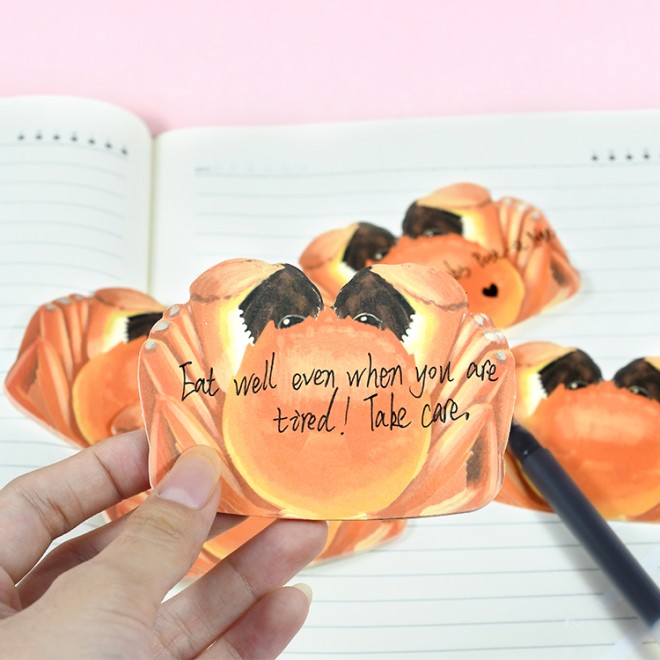 Eat well even when you are
tired! Take care.